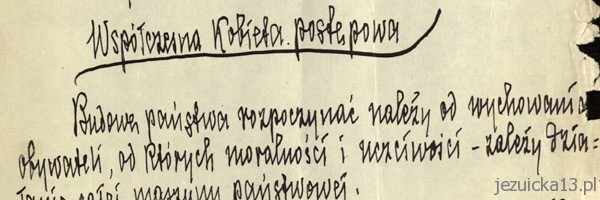 Współczesna Kobieta postępowa
Budowę państwa rozpoczynać należy od wychowania
obywateli, od których moralności i uczciwości - zależy dzia=
łanie całej maszyny państwowej.
jezuicka13.pl